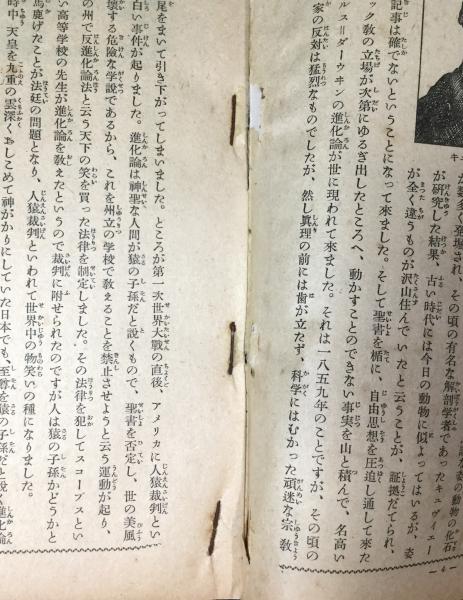 な姿の動物の化石
が数多く発堀され、その頃の有名な解剖学者であったキュヴィエー
が研究した結果、古い時代には今日の動物に似よってはいるが、姿
が全く違うものが沢山住んでいたと云うことが、証拠だてられ、
記事は確でないということになって来ました。そして聖書を楯に、自由思想を圧迫し通して来た
ック教の立場が次第にゆるぎ出したところへ、動かすことのできない事実を山と積んで、名高い
ルス＝ダーウヰンの進化論が世に現われて来ました。それは一八五九年のことですが、その頃の
家の反対は猛烈なものでしたが、然し真理の前には歯が立たず、科学にはむかった頑迷な宗教
尾をまいて引き下がってしまいました。ところが第一次世界大戰の直後、アメリカに人猿裁判とい
白い事件が起りました。進化論は神聖な人間が猿の子孫だと說くもので、聖書を否定し、世の美風
壊する危険な学說であるから、これを州立の学校で教えることを禁止させようと云う運動が起り、
の州で反進化論法と云う天下の笑を買った法律を制定しました。その法律を犯してスコープスとい
い高等学校の先生が進化論を教えたというので裁判に附せられたのですが人は猿の子孫かどうかと
馬鹿げたことが法廷の問題となり、人猿裁判といわれて世界中の物笑いの種になりました。
時中天皇を九重の雲深くおしこめて神がかりにしていた日本でも、至尊を猿の子孫だと說く進化論